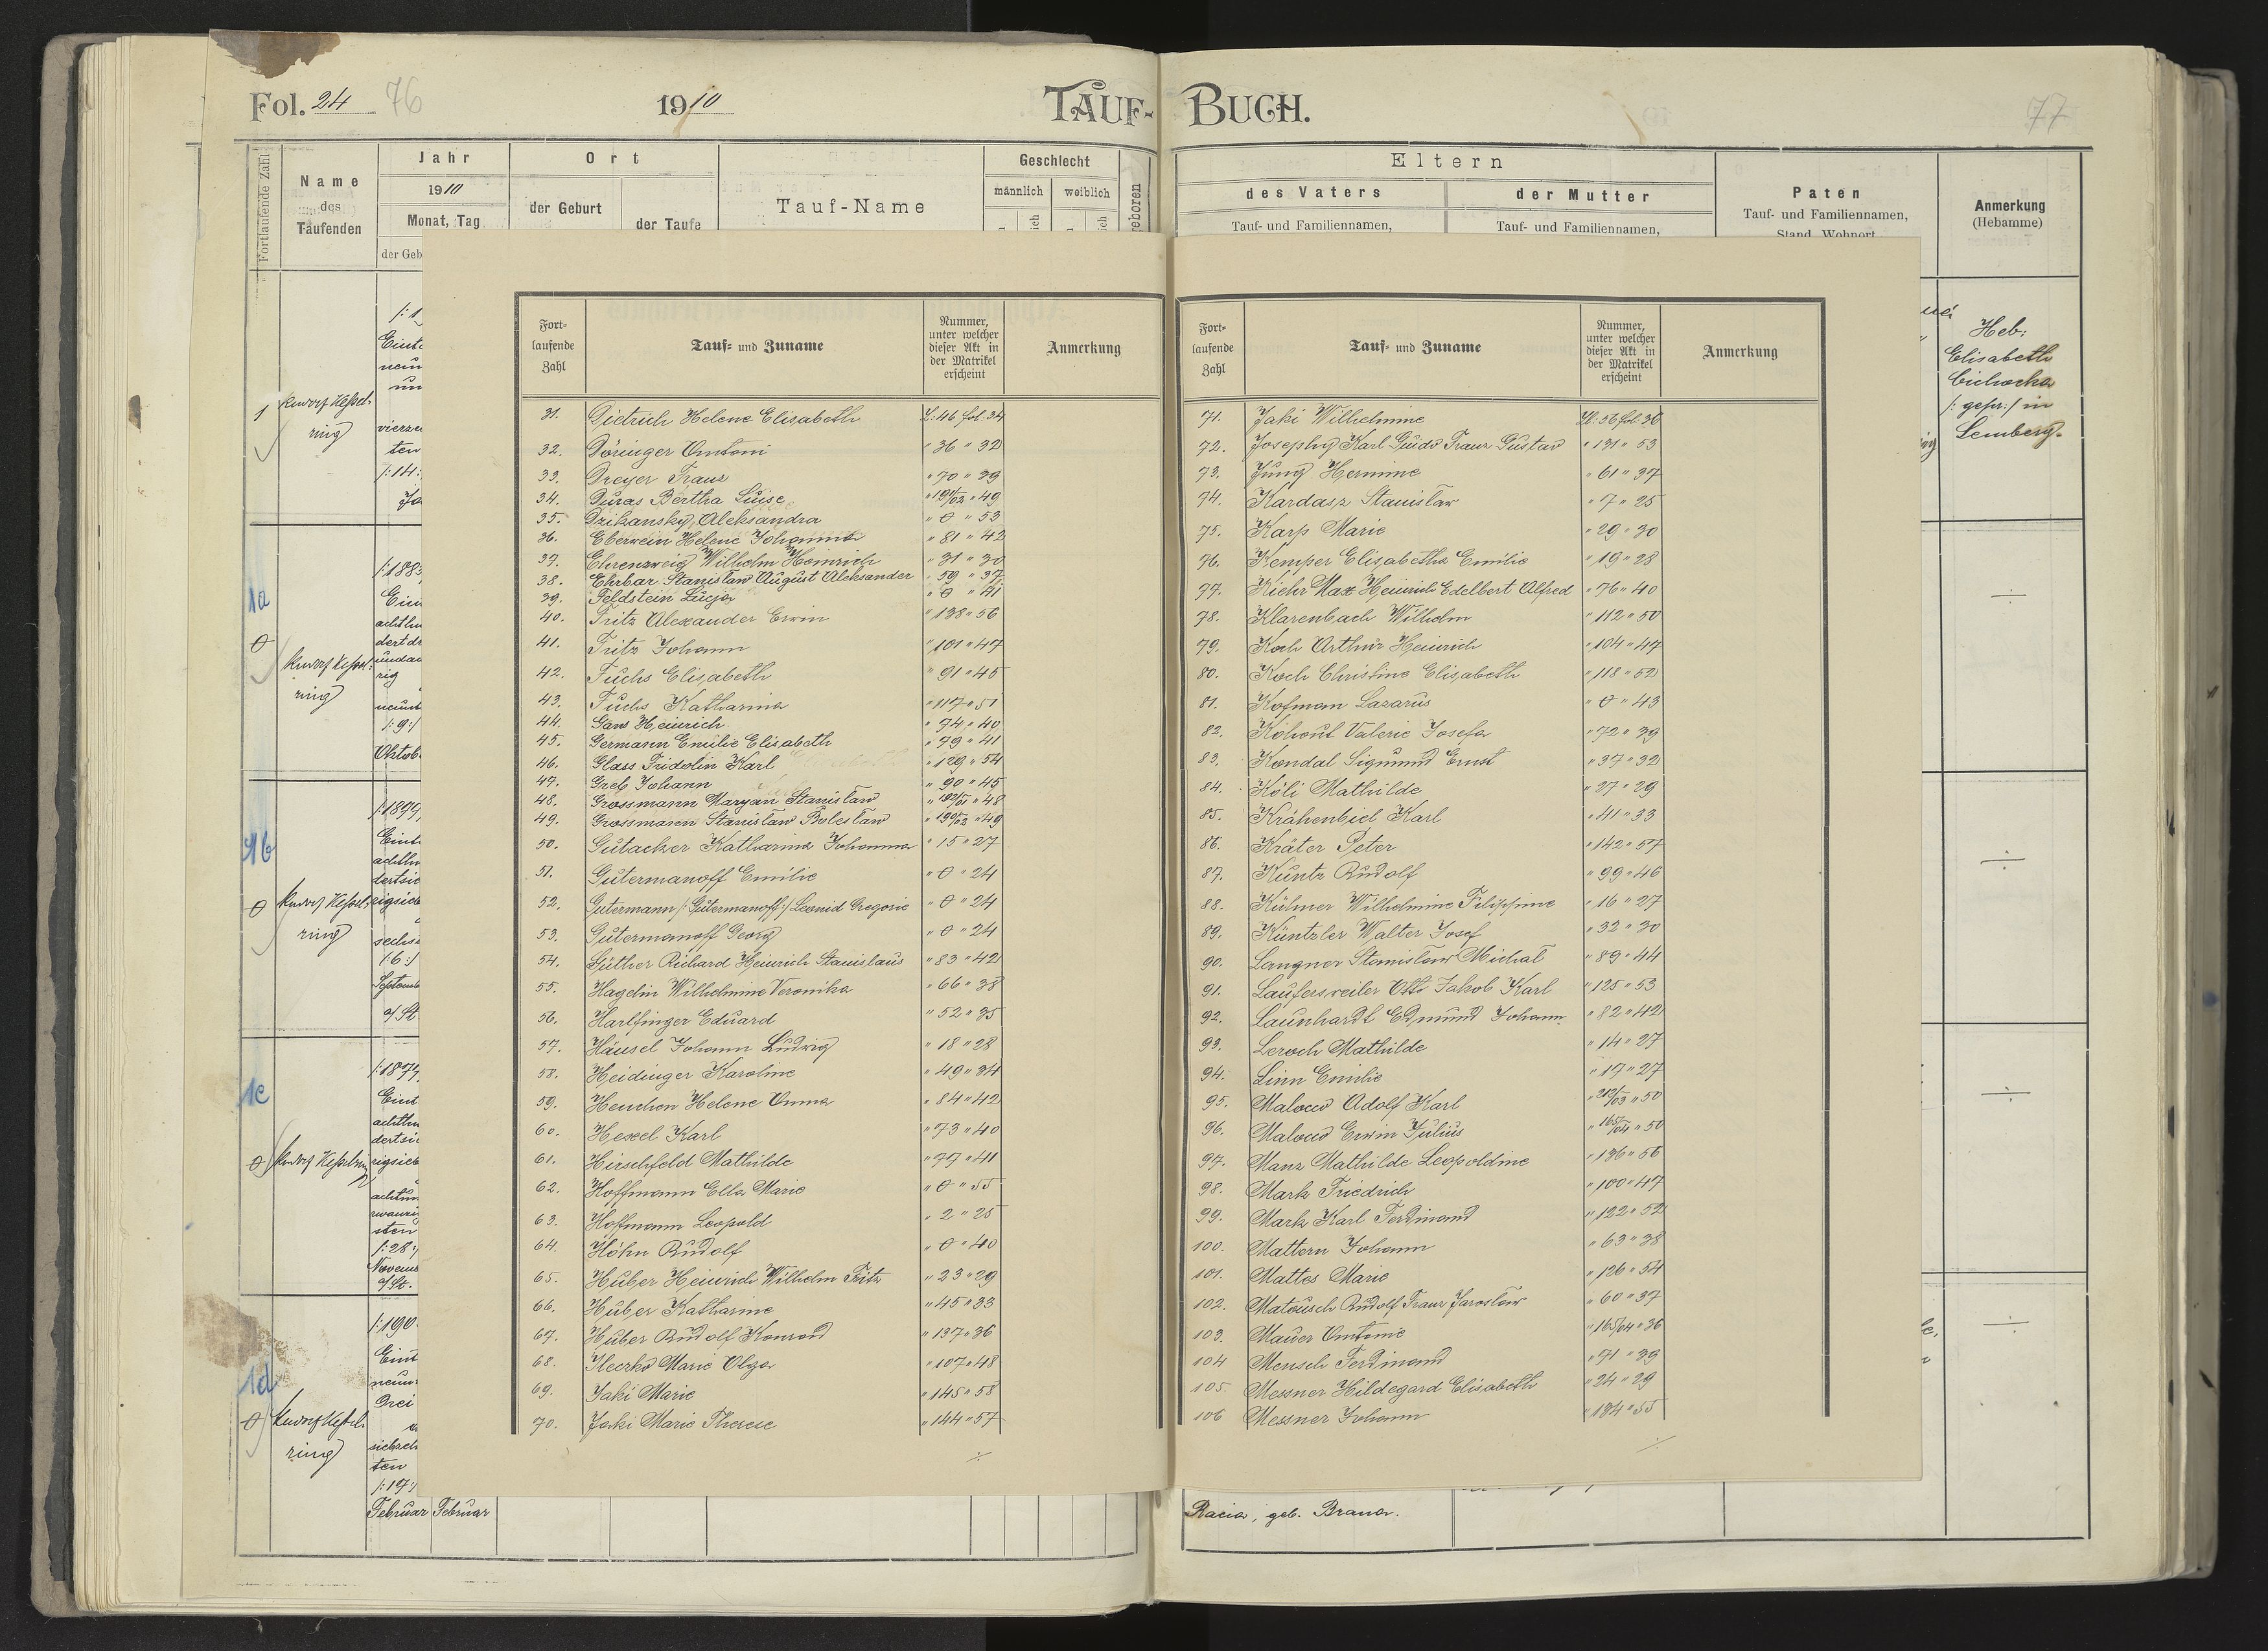 Fol. 24 76
1910
TAUF-
BUCH.
77
Fortlaufende Zahl
Name
des
Taufenden
Jahr
1910
Monat, Tag
der Geb
Ort
der Geburt
der Taufe
Tauf-Name
Geschlecht
männlich
weiblich
Eltern
des Vaters
Tauf- und Familiennamen,
der Mutter
Tauf- und Familiennamen,
Paten
Tauf- und Familiennamen,
Stand, Wohnort
Anmerkung
(Hebamme)
Heb:
Elisabeth
Cichocka
/: gepr:/ in
Lemberg.
1
ring
1a
ring
Oktob
1b
ring
1c
1d
ring
Februar Februar
Fort-
laufende
Zahl
Tauf- und Zuname
Nummer,
unter welcher
dieser Akt in
der Matrikel
erscheint
Anmerkung
31. Dietrich Helene Elisabeth Z: 46 fol. 34
32. Döringer Antoni " 36 " 32
33. Dreyer Franz " 70 " 39
34. Duras Bertha Luise " 191/02 " 49
35. Dzikansky Aleksandra " 0 " 53
36. Eberwein Helene Johanna " 81 " 42
37. Ehrenzweig Wilhelm Heinrich " 31 " 30
38. Ehrbar Stanisław August Aleksander " 59 " 37
39. Feldstein Lucja " 0 " 41
40. Fritz Alexander Erwin " 138 " 56
41. Fritz Johann " 101 " 47
42. Fuchs Elisabeth " 91 " 45
43. Fuchs Katharina " 117 " 51
44. Gans Heinrich " 74 " 40
45. Germann Emilie Elisabeth " 79 " 41
46. Glass Fridolin Karl " 129 " 54
47. Greb Johann " 90 " 45
48. Grossmann Maryan Stanisław " 192/01 " 48
49. Grossmann Stanisław Bolesław " 190/03 " 49
50. Gutacker Katharina Johanna " 15 " 27
51. Gutermanoff Emilie " 0 " 24
52. Gutermann /:Gutermanoff:/ Leonid Gregorie " 0 " 24
53. Gutermanoff Georg " 0 " 24
54. Güther Richard Heinrich Stanislaus " 83 " 42
55. Hagelin Wilhelmine Veronika " 66 " 38
56. Harlfinger Eduard " 52 " 35
57. Häusel Johann Ludwig " 18 " 28
58. Heidinger Karoline " 49 " 34
59. Heuchen Helene Anna " 84 " 42
60. Hexel Karl " 73 " 40
61. Hirschfeld Mathilde " 77 " 41
62. Hoffmann Ella Marie " 0 " 55
63. Hoffmann Leopold " 2 " 25
64. Höhn Rudolf " 0 " 40
65. Huber Heinrich Wilhelm Fritz " 23 " 29
66. Huber Katharine " 45 " 33
67. Huber Rudolf Konrad " 137 " 36
68. Ileczko Marie Olga " 107 " 48
69. Jaki Marie " 145 " 58
70. Jaki Marie Therese " 144 " 57
Fort-
laufende
Zahl
Tauf- und Zuname
Nummer,
unter welcher
dieser Akt in
der Matrikel
erscheint
Anmerkung
71. Jaki Wilhelmine Zl: 56 fol. 36
72. Josephy Karl Guido Franz Gustav " 131 " 53
73. Jung Hermine " 61 " 37
74. Kardasz Stanisław " 7 " 25
75. Karp Marie " 29 " 30
76. Kemper Elisabetha Emilie " 19 " 28
77. Kiehr Max Heinrich Edelbert Alfred " 76 " 40
78. Klarenbach Wilhelm " 112 " 50
79. Koch Arthur Heinrich " 104 " 47
80. Koch Christine Elisabeth " 118 " 52
81. Kofman Lazarus " 0 " 43
82. Kohout Valerie Josefa " 72 " 39
83. Kondal Sigmund Ernst " 37 " 32
84. Köli Mathilde " 27 " 29
85. Krähenbiel Karl " 41 " 33
86. Kräter Peter " 142 " 57
87. Kuntz Rudolf " 99 " 46
88. Kühner Wilhelmine Filippine " 16 " 27
89. Küntzler Walter Josef " 32 " 30
90. Langner Stanisław Michał " 89 " 44
91. Laufersweiler Otto Jakob Karl " 125 " 53
92. Launhardt Edmund Johann " 82 " 42
93. Leroch Mathilde " 14 " 27
94. Linn Emilie " 17 " 27
95. Malocco Adolf Karl " 212/03 " 50
96. Malocco Erwin Julius " 165/04 " 50
97. Manz Mathilde Leopoldine " 136 " 56
98. Mark Friedrich " 100 " 47
99. Mark Karl Ferdinand " 122 " 52
100. Mattern Johann " 63 " 38
101. Mattes Marie " 126 " 54
102. Matousch Rudolf Franz Jarosław " 60 " 37
103. Mauer Antonie " 165/04 " 36
104 Mensch Ferdinand " 71 " 39
105. Messner Hildegard Elisabeth " 24 " 29
106 Messner Johann " 134 " 55
Racia, geb. Brana.